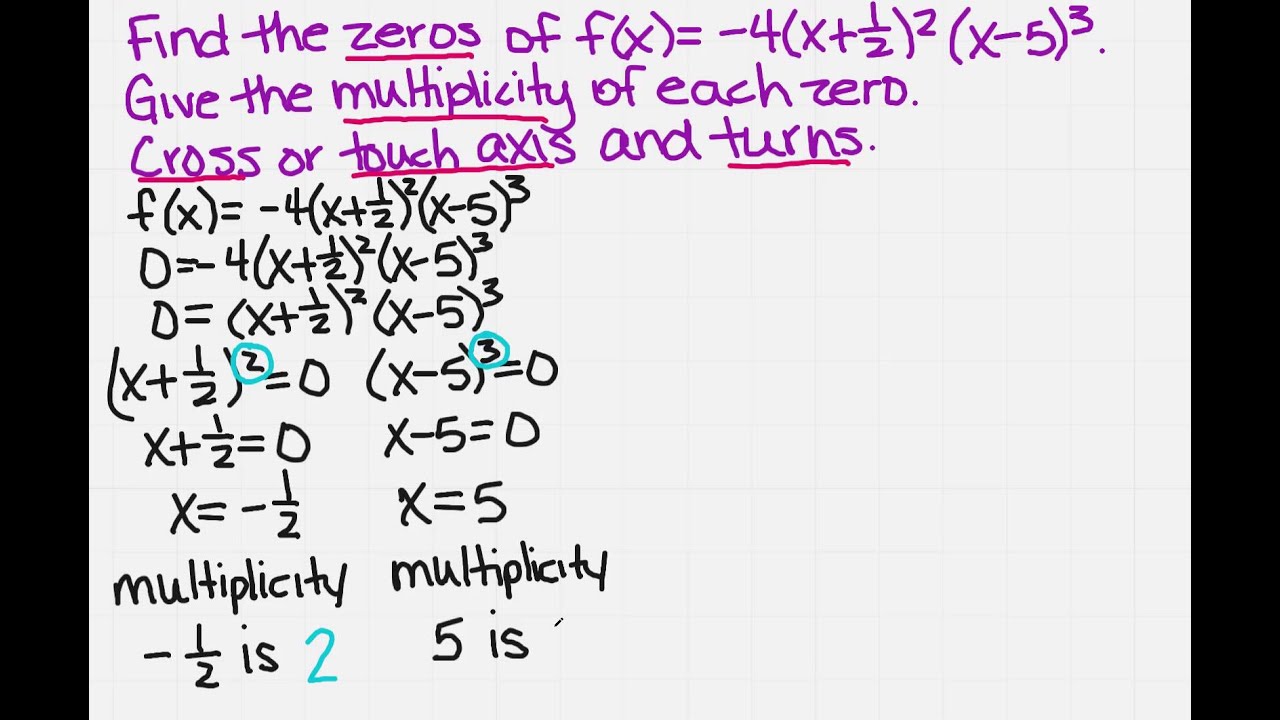 Find the zeros of f(x)= -4(x+1/2)² (x-5)³.
Give the multiplicity of each zero.
Cross or touch axis and turns.
f(x)= -4(x+1/2)²(x-5)³
0=-4(x+1/2)²(x-5)³
0= (x+1/2)²(x-5)³
(x+1/2)²=0 (x-5)³=0
x+1/2=0 x-5=0
x=-1/2 x=5
multiplicity multiplicity
-1/2 is 2 5 is